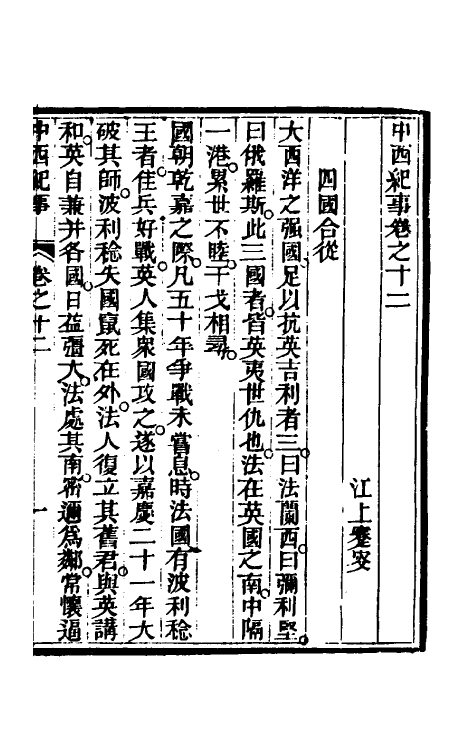 中西紀事卷之十二
江上蹇叟
四國合從
大西洋之强國足以抗英吉利者三曰法蘭西曰彌利堅
曰俄羅斯此三國者皆英夷世仇也法在英國之南中隔
一港累世不睦干戈相尋
國朝乾嘉之際凡五十年爭戰未嘗息時法國有波利稔
王者隹兵好戰英人集衆國攻之遂以嘉慶二十一年大
破其師波利稔失國竄死在外法人復立其舊君與英講
和英自兼并各國日益强大法處其南密邇爲鄰常懷逼
中西紀事
卷之十二
一